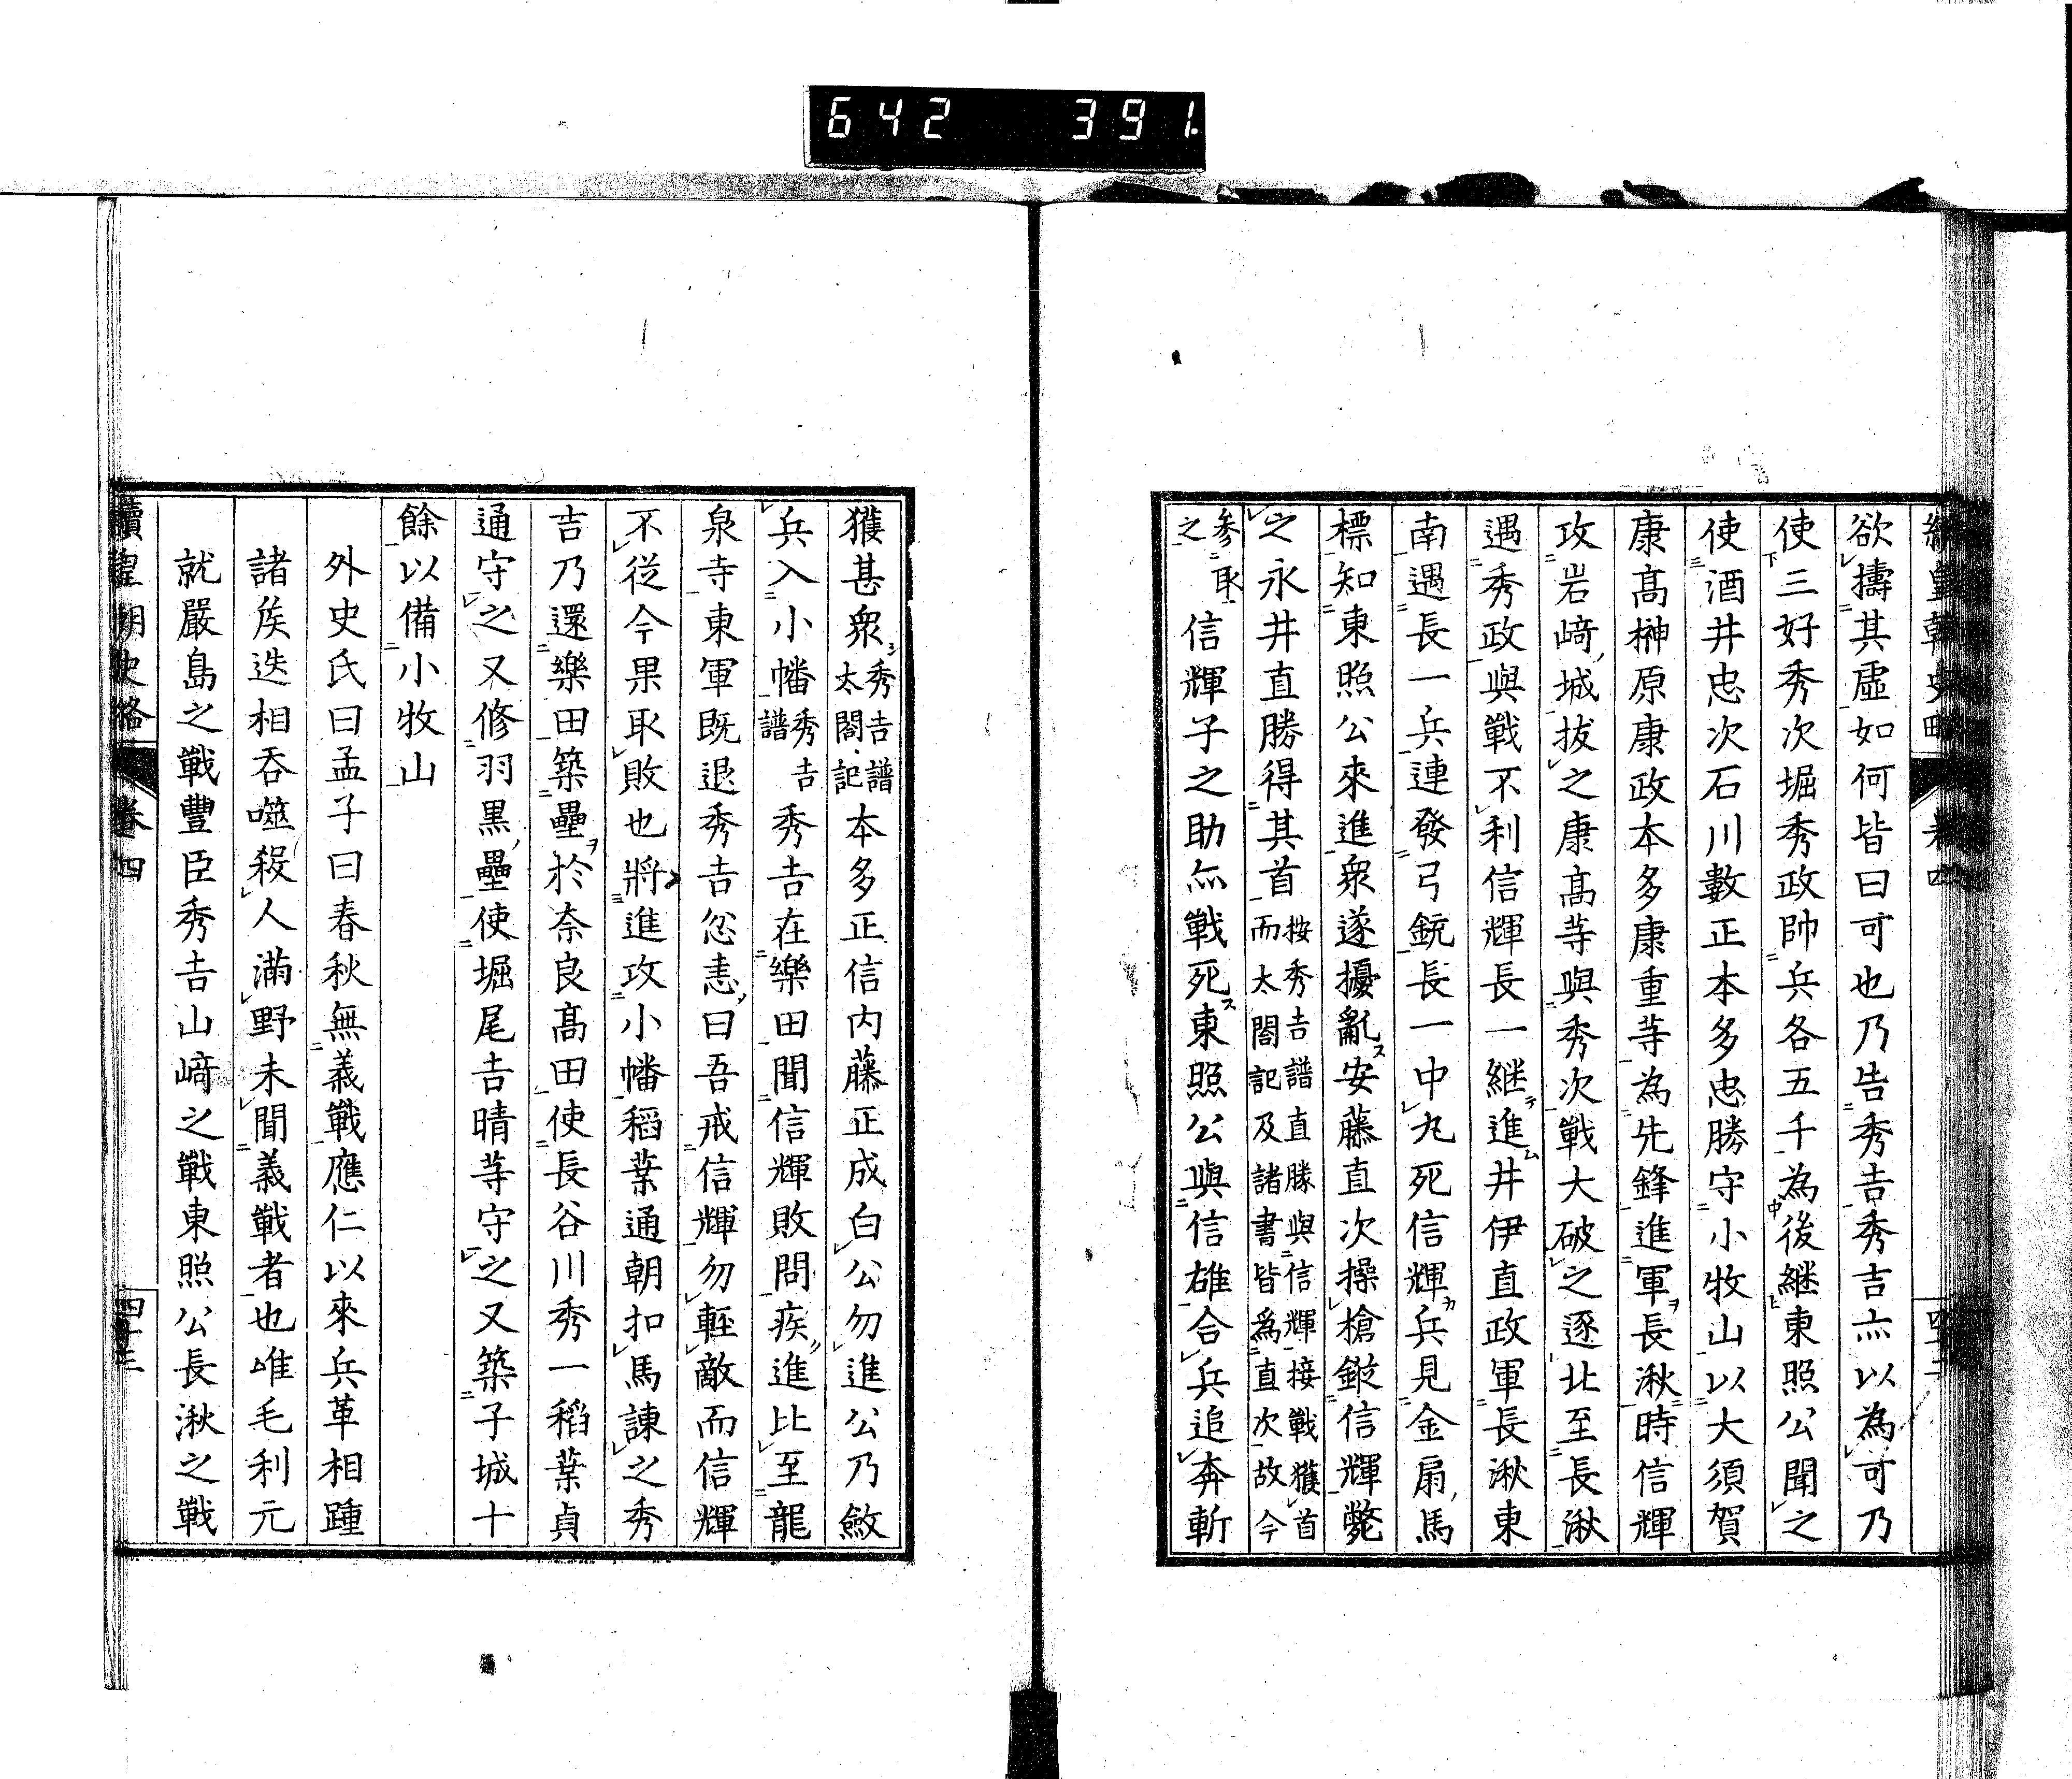 642 391.
續皇朝史略 卷四 四十二
欲擣其虛如何皆曰可也乃告秀吉秀吉亦以為可乃
使三好秀次堀秀政帥兵各五千為後継東照公聞之
使酒井忠次石川數正本多忠勝守小牧山以大須賀
康高榊原康政本多康重等為先鋒進軍長湫時信輝
攻岩﨑城拔之康高等與秀次戰大破之逐北至長湫
遇秀政與戰不利信輝長一継進井伊直政軍長湫東
南遇長一兵連發弓銃長一中丸死信輝兵見金扇馬
標知東照公來進衆遂擾亂安藤直次操槍鏦信輝斃
之永井直勝得其首按秀吉譜直勝與信輝接戰獲首而太閤記及諸書皆為直次故今
參取之信輝子之助亦戰死東照公與信雄合兵追奔斬
獲甚衆秀吉譜太閤記本多正信内藤正成白公勿進公乃斂
兵入小幡秀吉譜秀吉在樂田聞信輝敗問疾進比至龍
泉寺東軍既退秀吉忿恚曰吾戒信輝勿輕敵而信輝
不從今果取敗也將進攻小幡稻葉通朝扣馬諫之秀
吉乃還樂田築壘於奈良髙田使長谷川秀一稻葉貞
通守之又修羽黒壘使堀尾吉晴等守之又築子城十
餘以備小牧山
外史氏曰孟子曰春秋無義戰應仁以來兵革相踵
諸侯迭相吞噬殺人滿野未聞義戰者也唯毛利元
就嚴島之戰豐臣秀吉山﨑之戰東照公長湫之戰
續皇朝史略 卷四 四十三